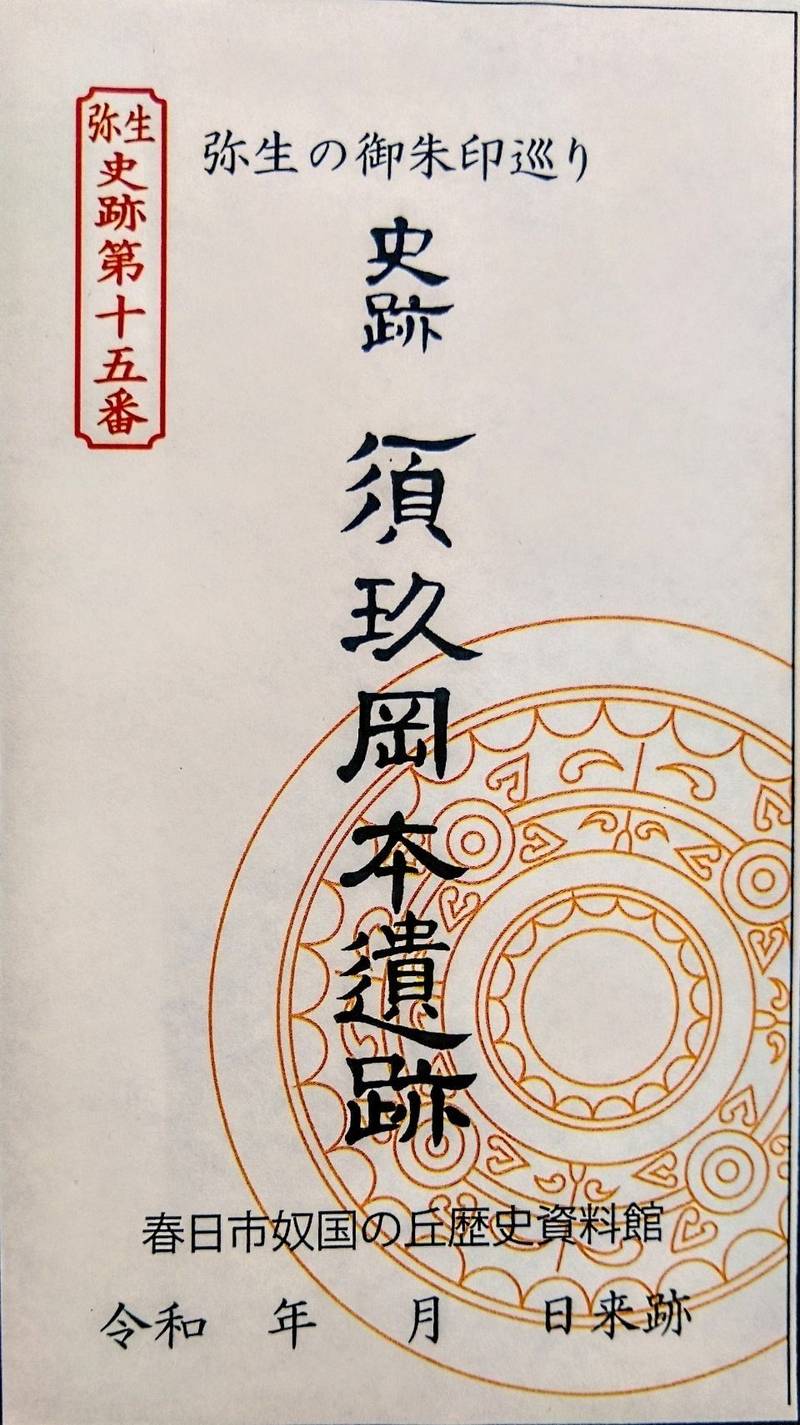 弥生の御朱印巡り
弥生
史跡第十五番
史跡
須玖岡本遺跡
春日市奴国の丘歴史資料館
令和　年　月　日来跡